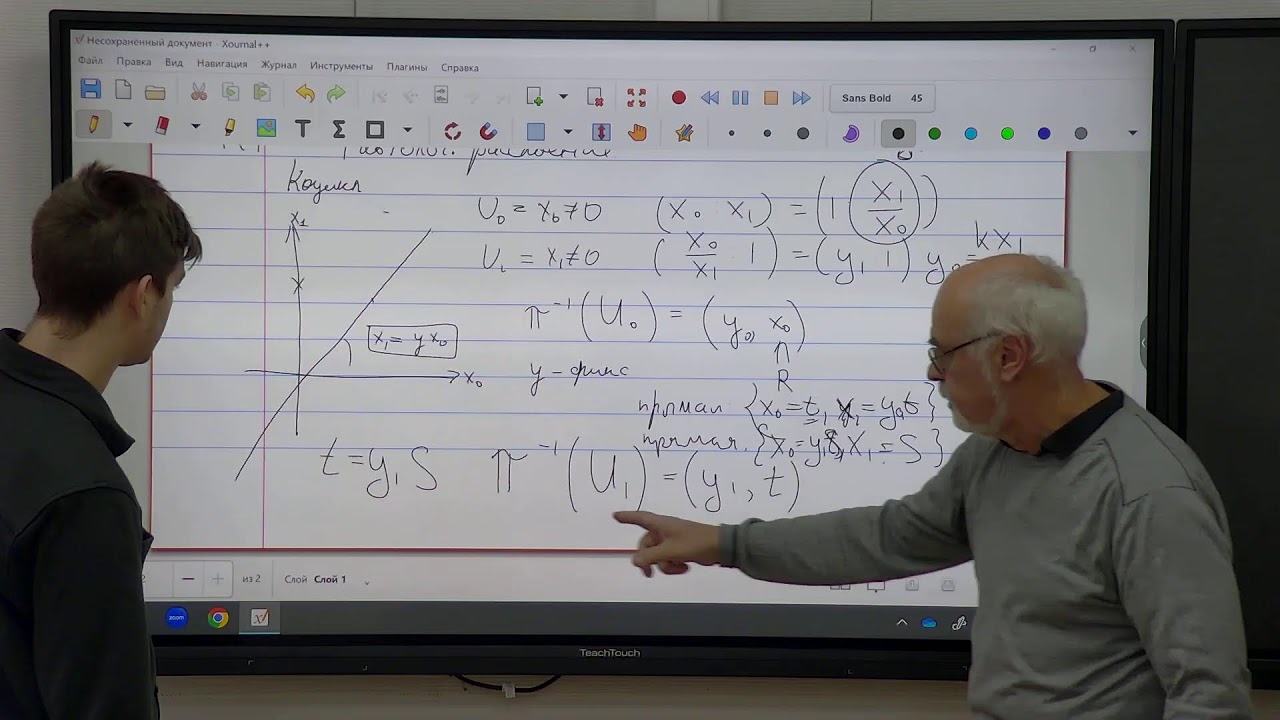 Несохранённый документ - Xournal++
Файл Правка Вид Навигация Журнал Инструменты Плагины Справка
Sans Bold 45
Коцикл
x₁
U₀ = x₀ ≠ 0 (x₀ x₁) = (1 x₁/x₀)
U₁ = x₁ ≠ 0 (x₀/x₁ 1) = (y₁ 1) y₀ =
kx₁
π⁻¹(U₀) = (y₀, x₀)
∩
R
x₁ = y x₀
x₀
y - фикс
прямая {x₀ = t, x₁ = y₀t}
прямая {x₀ = y₁s, x₁ = s}
t = y₁ s π⁻¹(U₁) = (y₁, t)
2 из 2 Слой Слой 1
zoom
TeachTouch